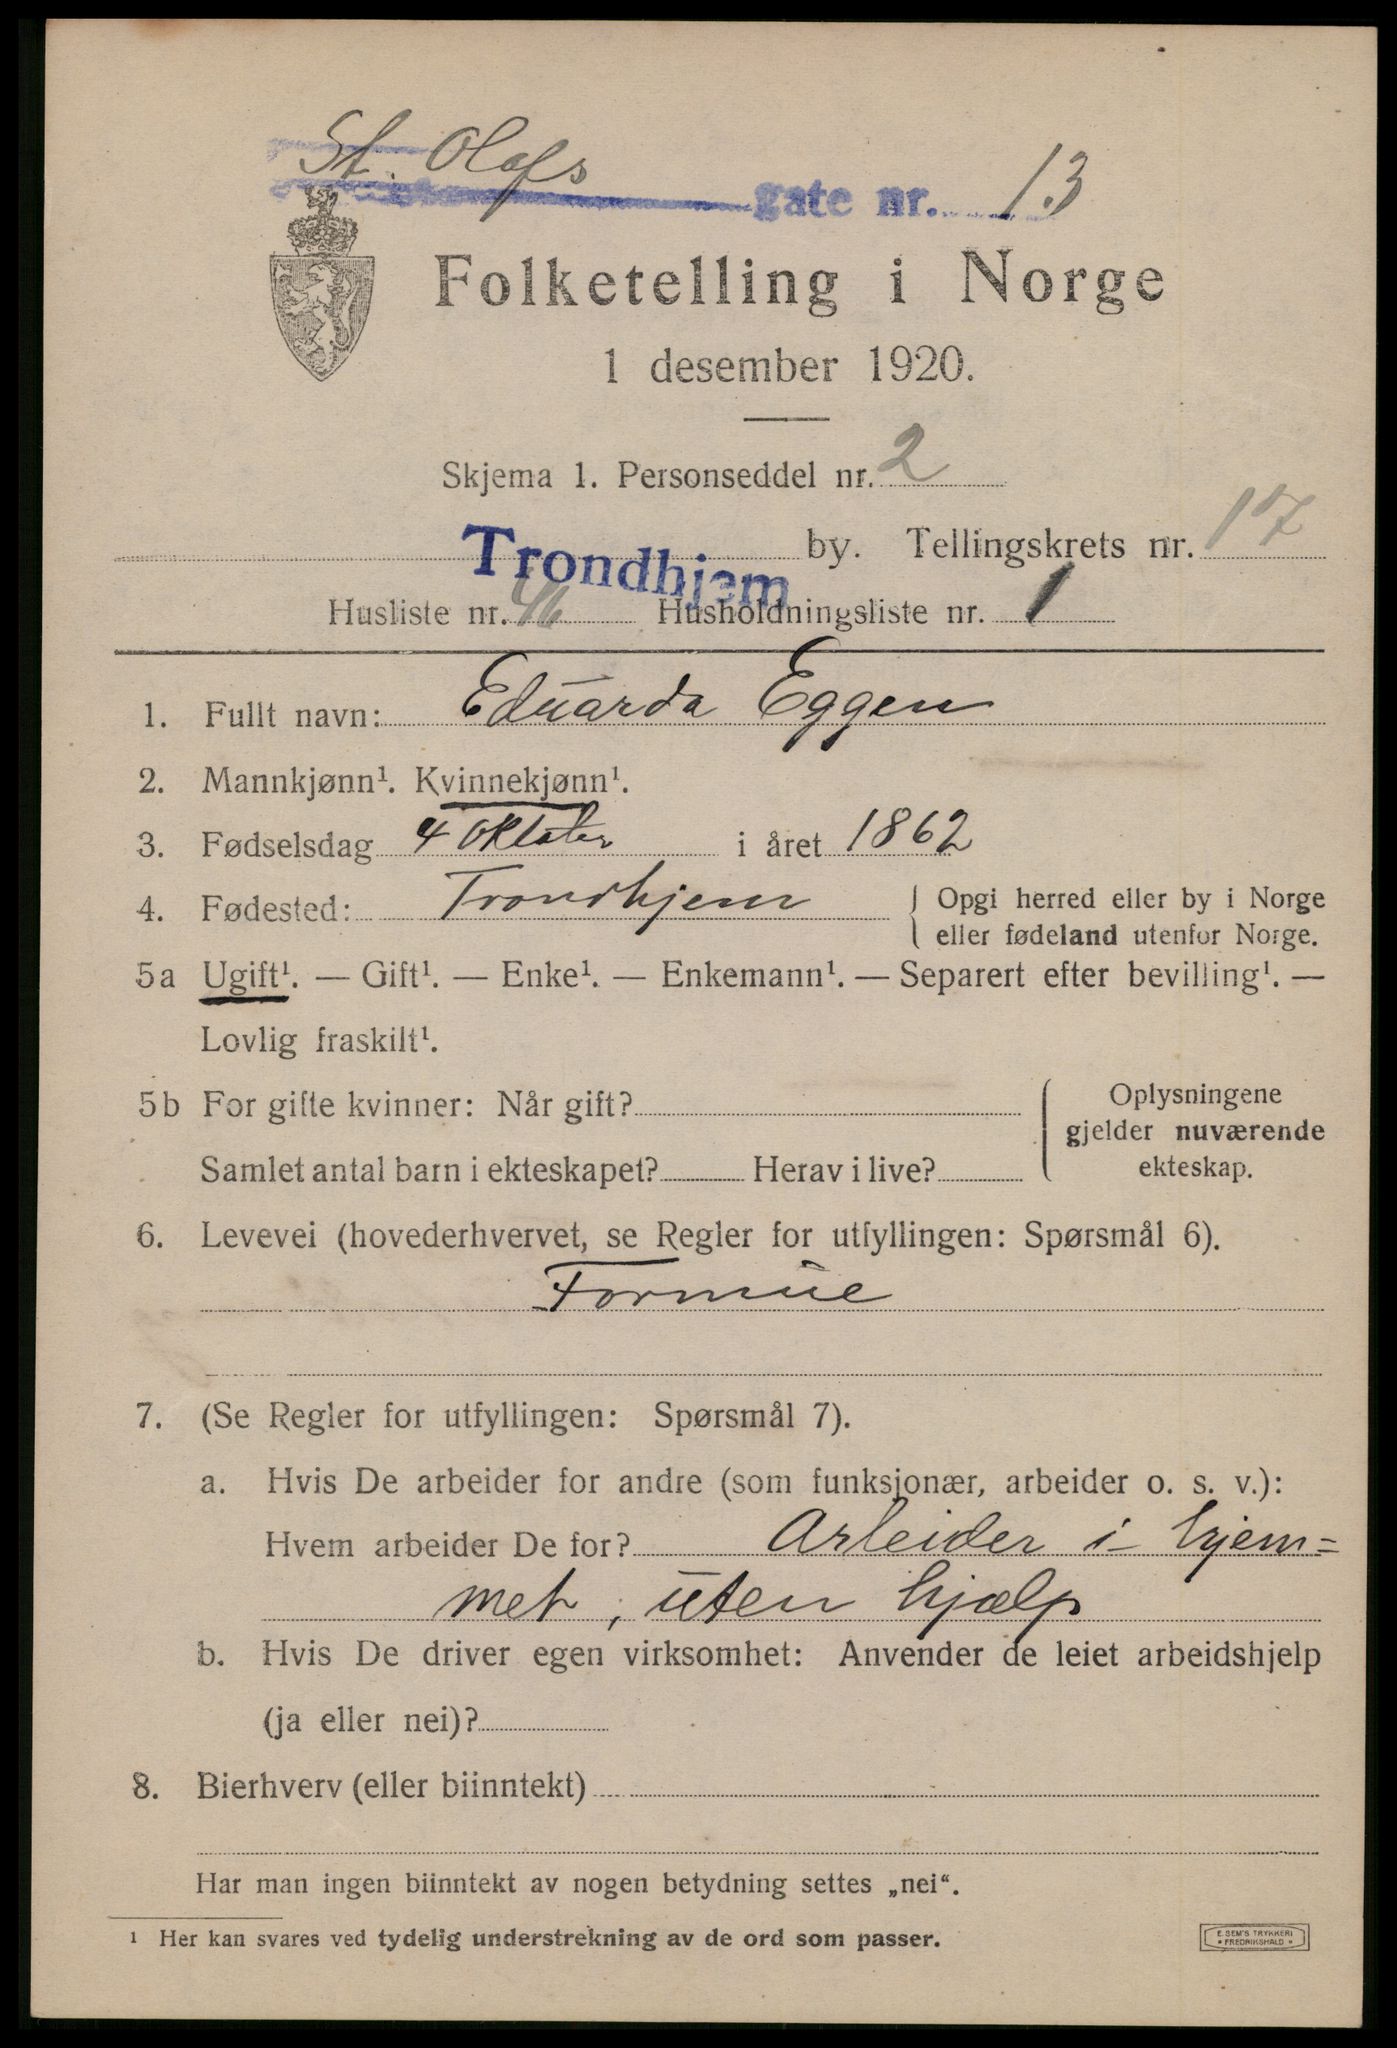 St. Olafs gate nr. 13
Folketelling i Norge
1 desember 1920.
Skjema 1. Personseddel nr. 2
Trondhjem by. Tellingskrets nr. 17
Husliste nr. 46 Husholdningsliste nr. 1
1. Fullt navn: Eduarda Eggen
2. Mannkjønn¹. Kvinnekjønn¹.
3. Fødselsdag 4 Oktober i året 1862
4. Fødested: Trondhjem { Opgi herred eller by i Norge
eller fødeland utenfor Norge.
5a Ugift¹. — Gift¹. — Enke¹. — Enkemann¹. — Separert efter bevilling¹. —
Lovlig fraskilt¹.
5b For gifte kvinner: Når gift? { Oplysningene
gjelder nuværende
Samlet antal barn i ekteskapet? Herav i live? ekteskap.
6. Levevei (hovederhvervet, se Regler for utfyllingen: Spørsmål 6).
Formue
7. (Se Regler for utfyllingen: Spørsmål 7).
a. Hvis De arbeider for andre (som funksjonær, arbeider o. s. v.):
Hvem arbeider De for? Arbeider i hjem=
met, uten hjælp
b. Hvis De driver egen virksomhet: Anvender de leiet arbeidshjelp
(ja eller nei)?
8. Bierhverv (eller biinntekt)
Har man ingen biinntekt av nogen betydning settes „nei“.
¹ Her kan svares ved tydelig understrekning av de ord som passer.
E. SEM'S TRYKKERI
* FREDRIKSHALD *